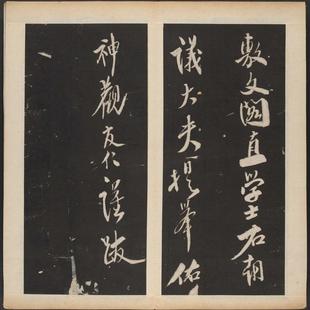 敷文阁直学士右朝
議大夫提举佑
神觀友仁謹跋